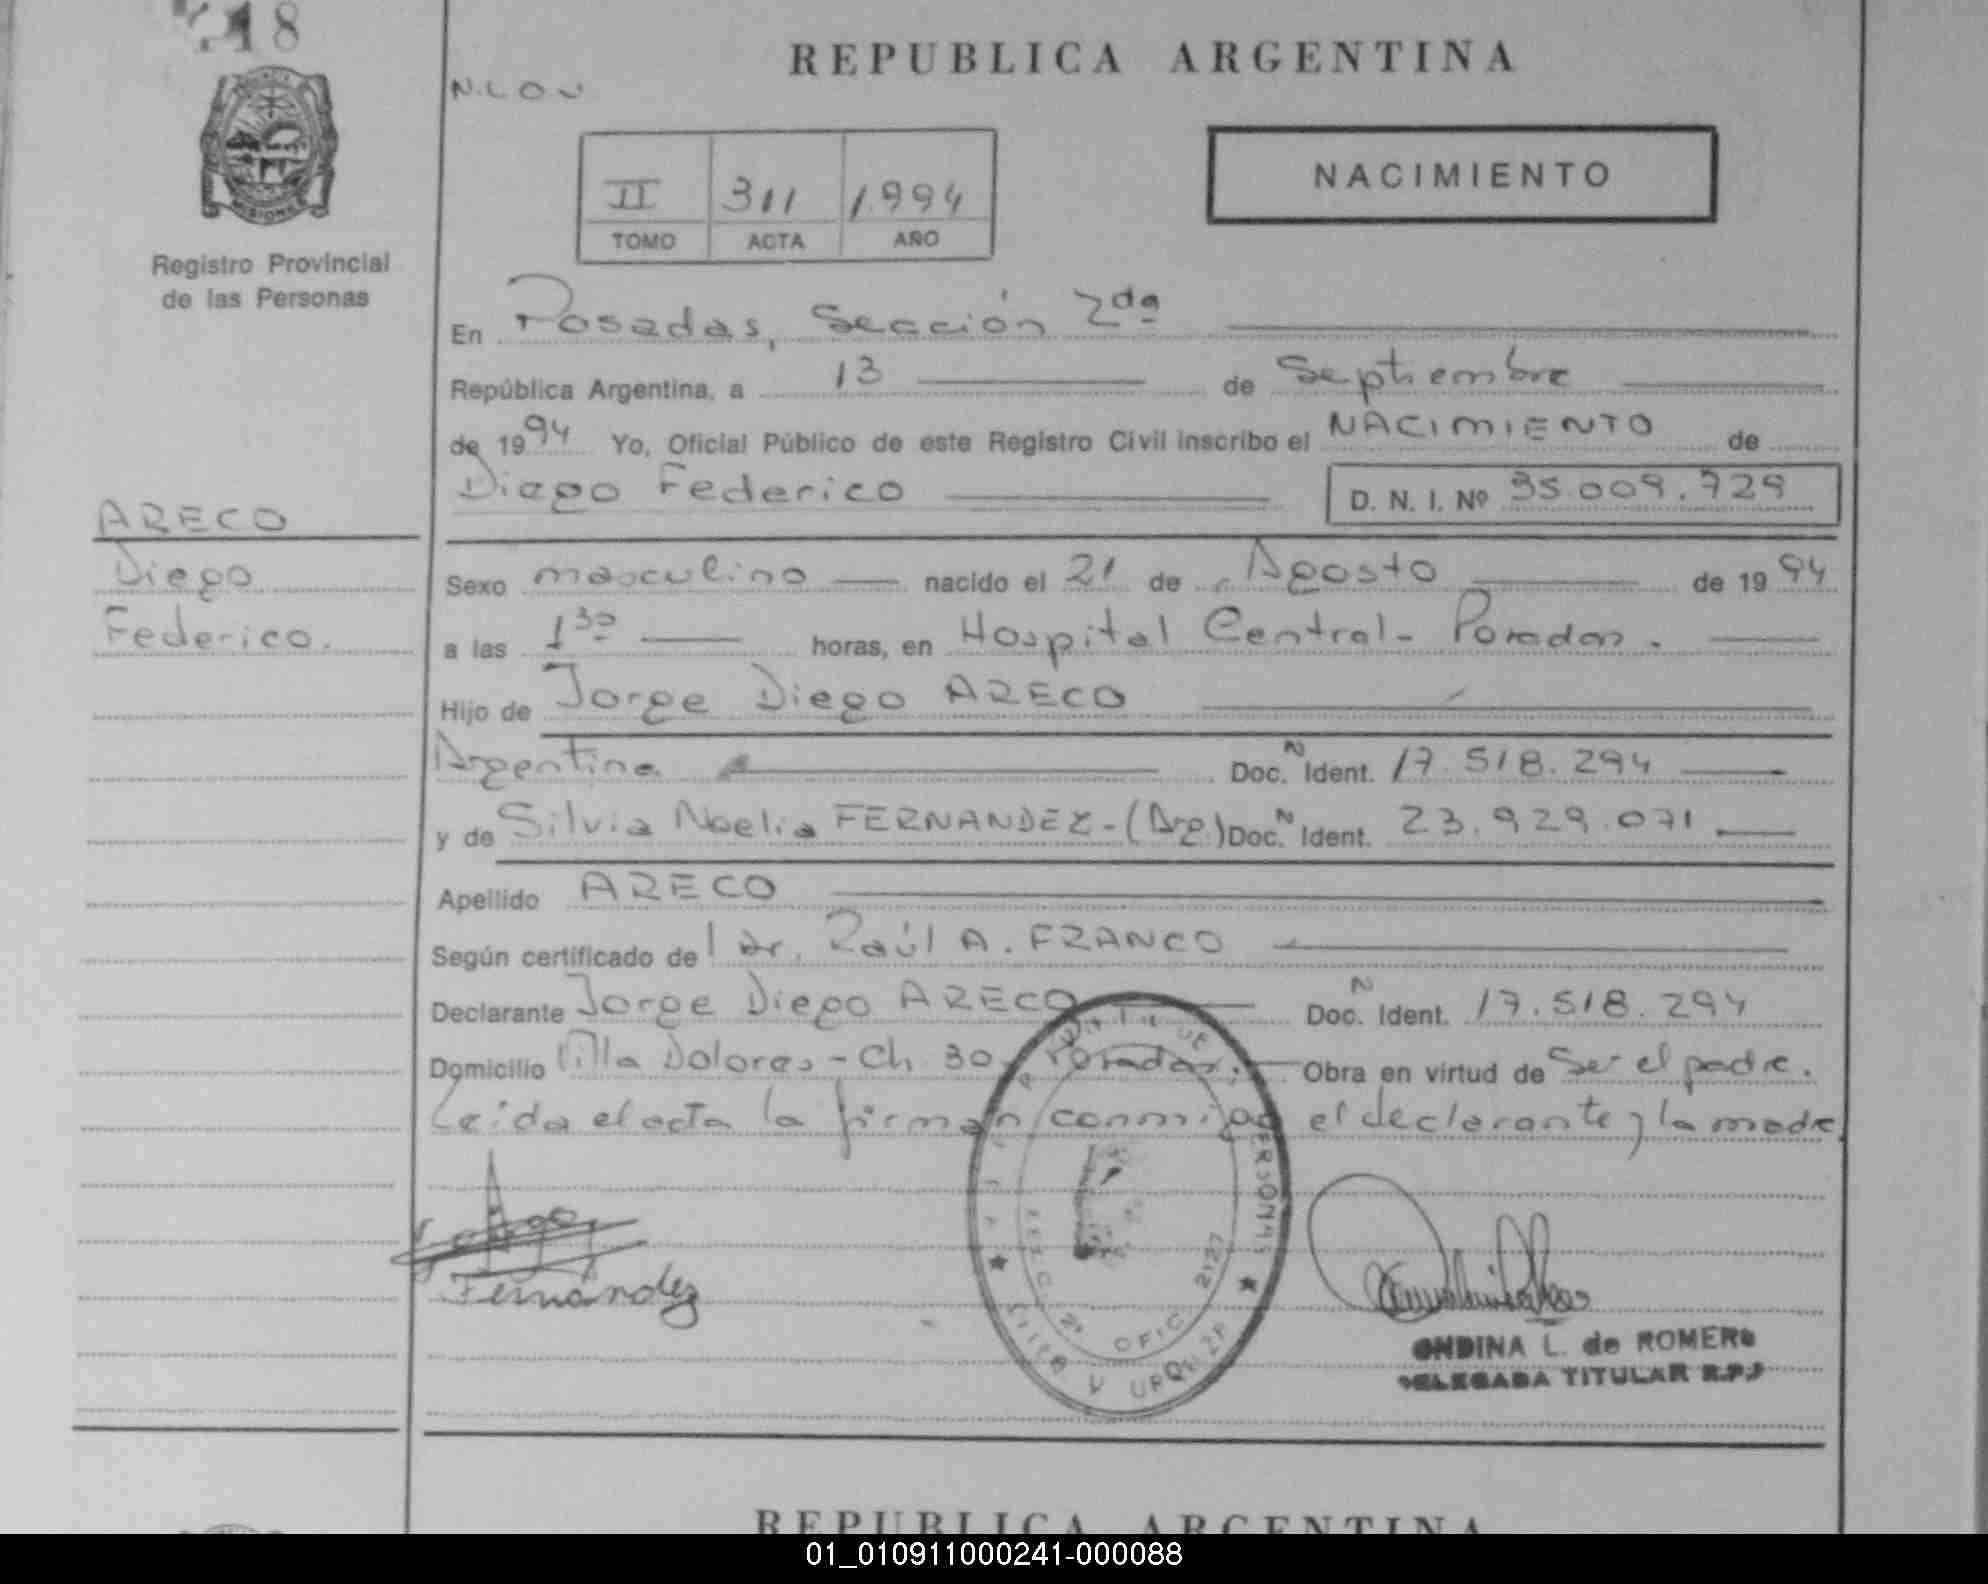 18
N.L.O.V
REPUBLICA ARGENTINA
NACIMIENTO
II 311 1.994
TOMO ACTA AÑO
MISIONES
Registro Provincial
de las Personas
En Posadas, Sección 2da
República Argentina, a 13 de Septiembre
de 1994 Yo, Oficial Público de este Registro Civil inscribo el NACIMIENTO de
Diego Federico D. N. I. Nº 35.009.729
ARECO
Diego
Federico.
Sexo masculino nacido el 21 de Agosto de 1994
a las 1 30 horas, en Hospital Central - Posadas.
Hijo de Jorge Diego ARECO
Argentina Doc. N Ident. 17.518.294
y de Silvia Noelia FERNANDEZ - (Arg.) Doc. N Ident. 23.929.071
Apellido ARECO
Según certificado del Dr. Raúl A. FRANCO
Declarante Jorge Diego ARECO Doc. N Ident. 17.518.294
Domicilio Villa Dolores - Ch. 30 - Posadas. Obra en virtud de Ser el padre.
Leida el acta la firman conmigo el declarante y la madre.
PERSONAS
SECC. 2ª OFIC. 2127
URQUIZA
Fernández
ONDINA L. de ROMERO
DELEGADA TITULAR R.P.P
REPUBLICA ARGENTINA
01_010911000241-000088